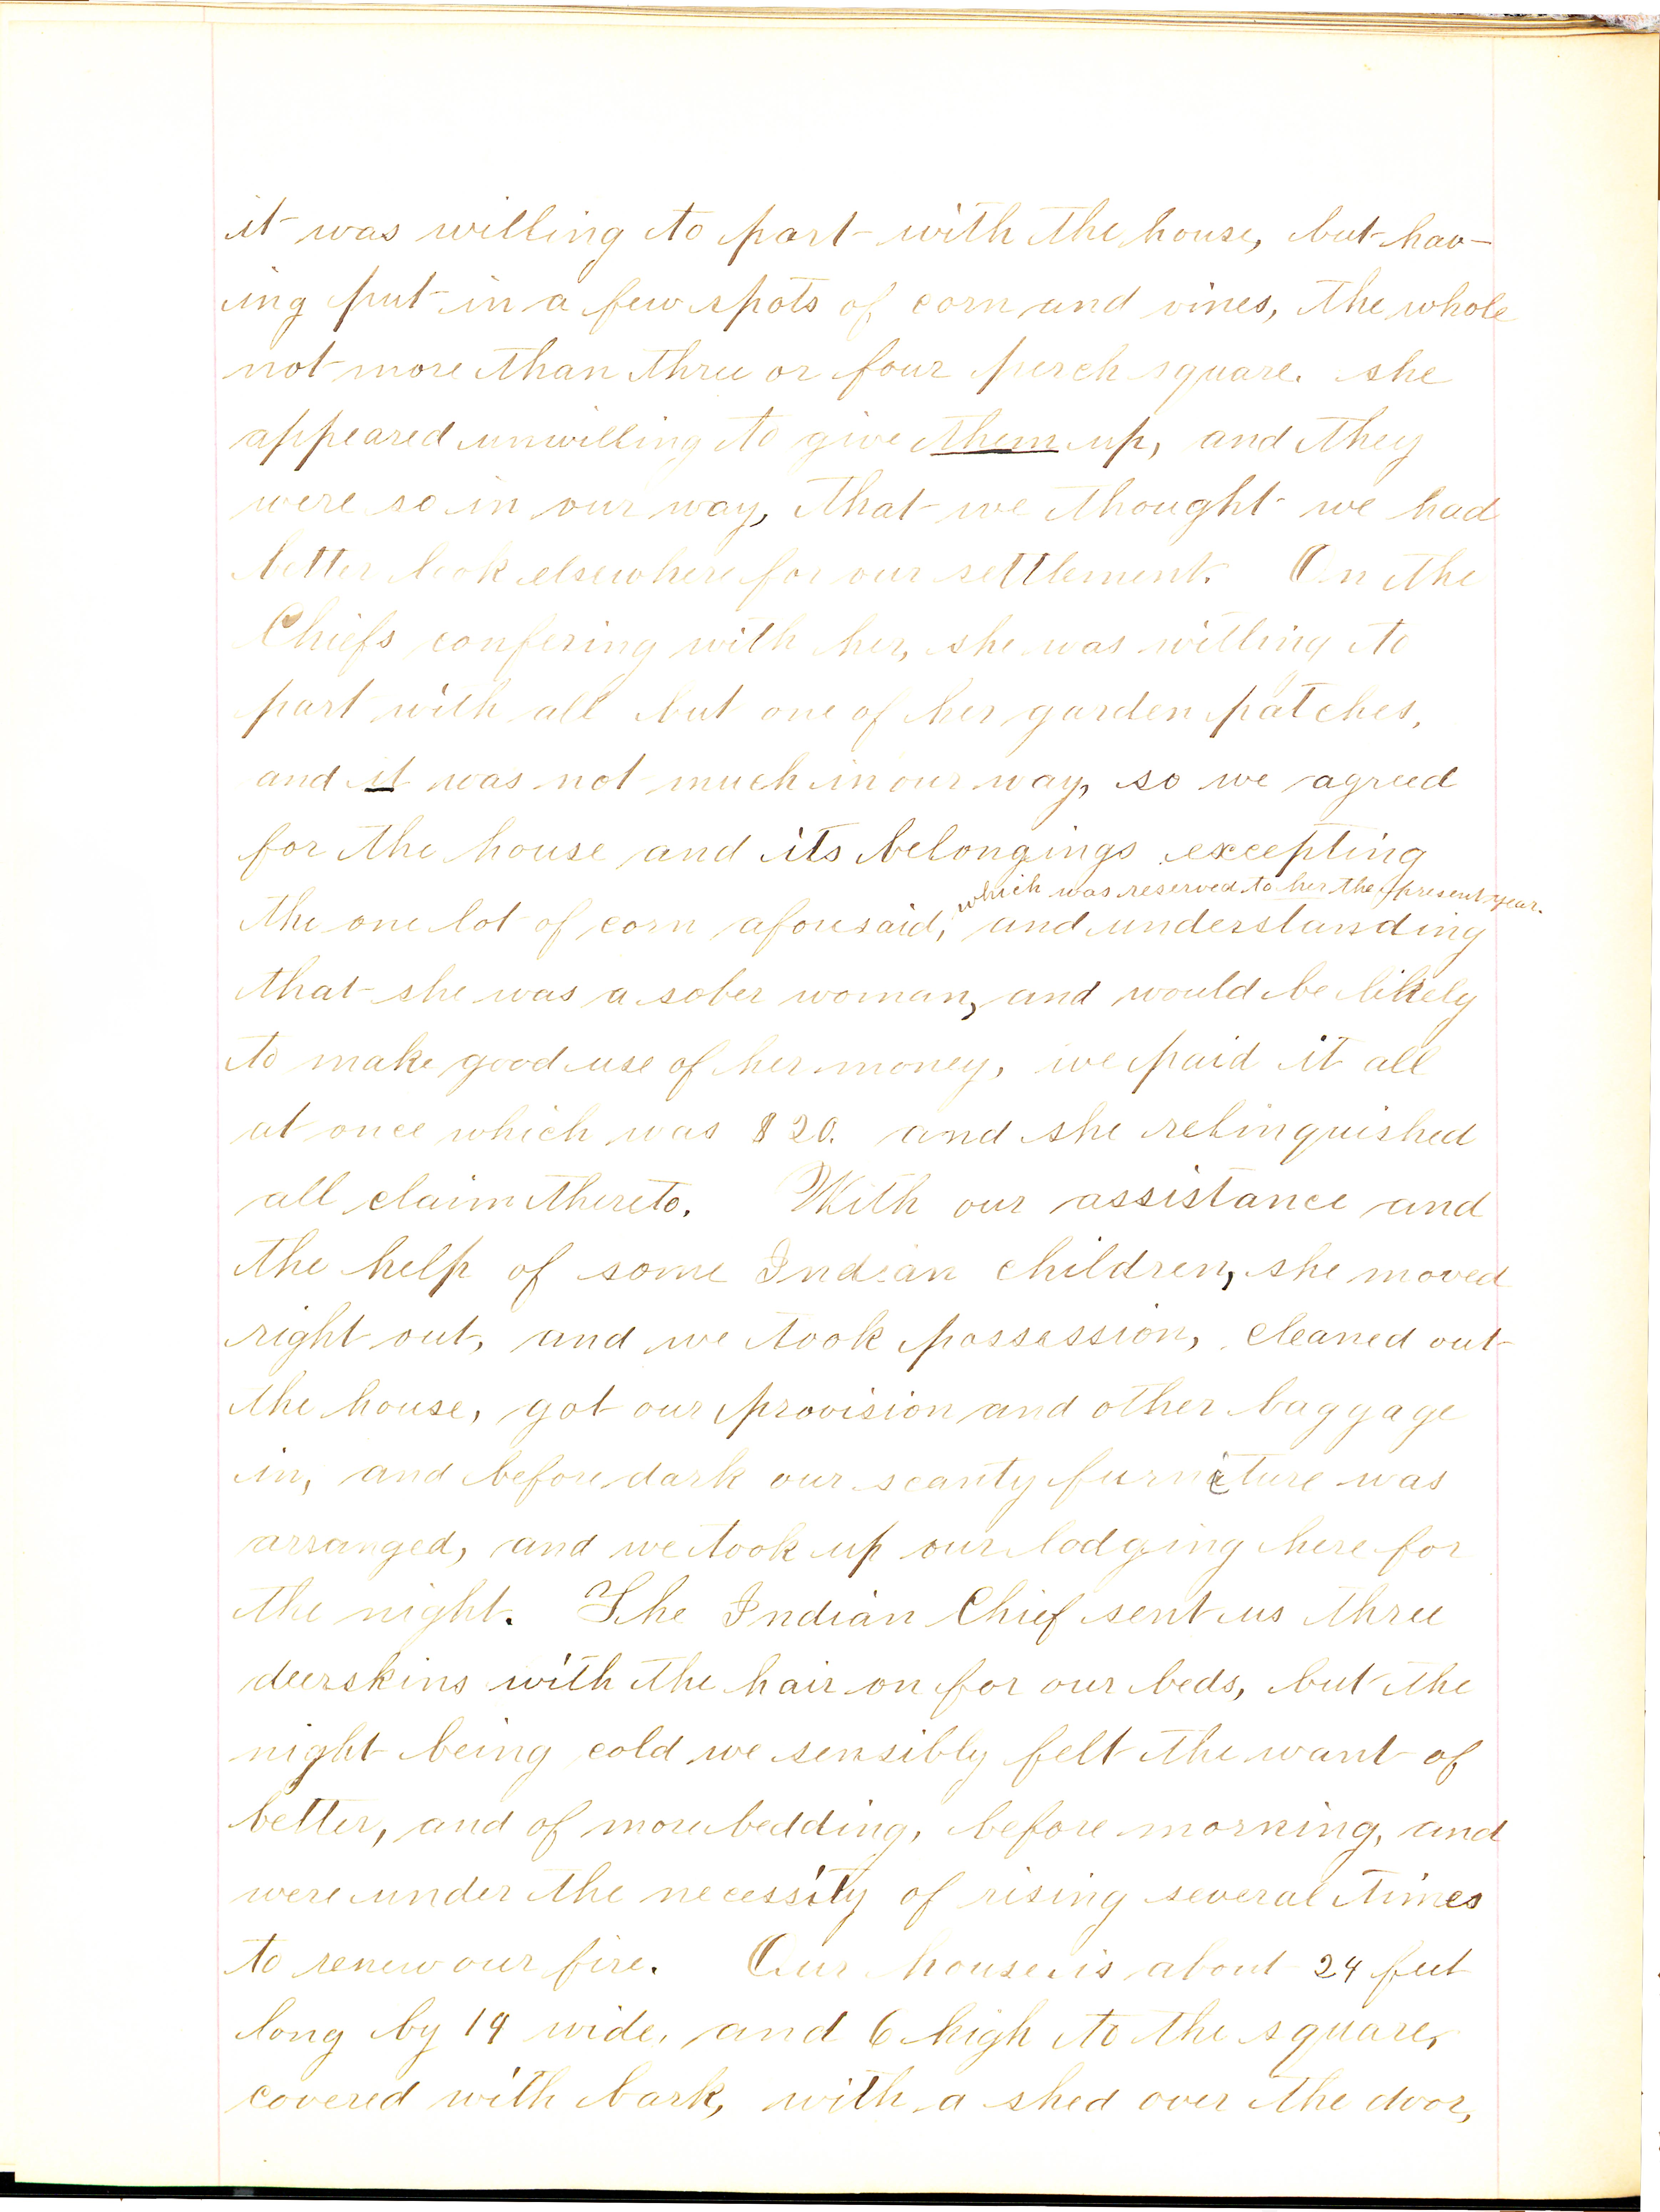 it was willing to part with the house, but hav-
ing put in a few spots of corn and vines, the whole
not more than three or four perch square. she
appeared unwilling to give them up, and they
were so in our way, that we thought we had
better look elsewhere for our settlement. On the
Chiefs confering with her, she was willing to
part with all but one of her garden patches,
and it was not much in our way, so we agreed
for the house and its belongings excepting
which was reserved to her the present year.
the one lot of corn aforesaid, and understanding
that she was a sober woman, and would be likely
to make good use of her money, we paid it all
at once which was $20. and she relinquished
all claim thereto. With our assistance and
the help of some Indian children, she moved
right out, and we took possession, cleaned out
the house, got our provision and other baggage
in, and before dark our scanty furniture was
arranged, and we took up our lodging here for
the night. The Indian Chief sent us three
deerskins with the hair on for our beds, but the
night being cold we sensibly felt the want of
better, and of more bedding, before morning, and
were under the necessity of rising several times
to renew our fire. Our house is about 24 feet
long by 14 wide, and 6 high to the square,
covered with bark, with a shed over the door,